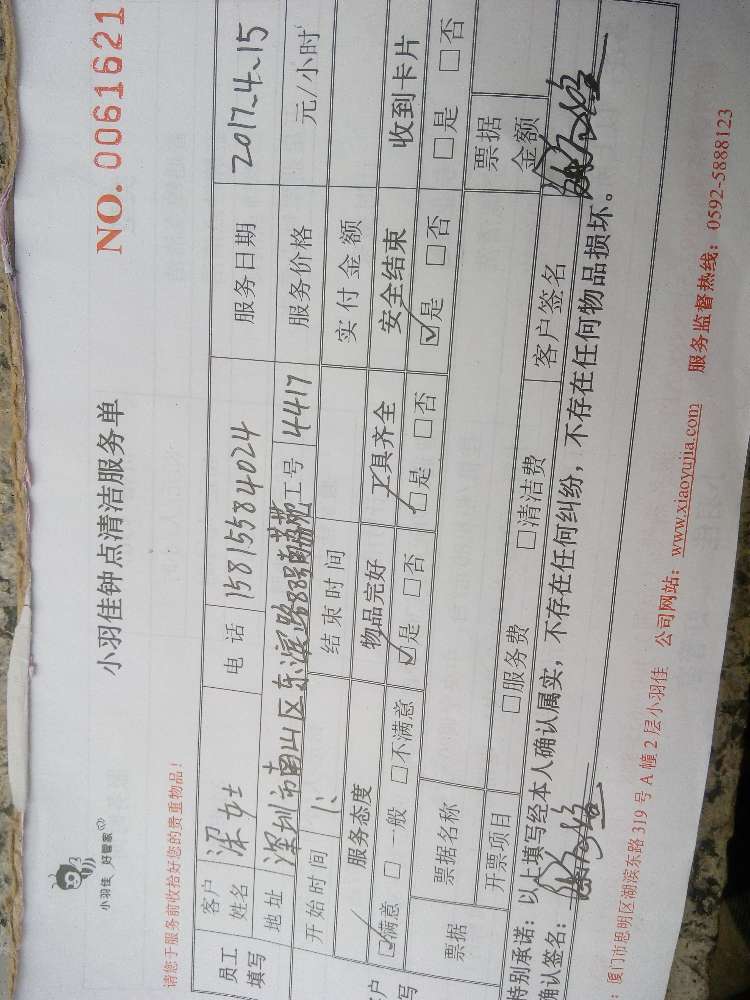 小羽佳 好管家
小羽佳钟点清洁服务单
NO. 0061621
请您于服务前收拾好您的贵重物品！
员工填写 客户姓名 梁女士 电话 15815584024 服务日期 2017.4.15
地址 深圳市南山区东滨路88号南荔苑 工号 4417 服务价格 元/小时
开始时间 结束时间 实付金额
服务态度 物品完好 工具齐全 安全结束 收到卡片
☑满意 □一般 □不满意 ☑是 □否 ☑是 □否 ☑是 □否 □是 □否
票据 票据名称 票据金额
开票项目 □服务费 □清洁费 客户签名
特别承诺：以上填写经本人确认属实，不存在任何纠纷，不存在任何物品损坏。
确认签名：
：厦门市思明区湖滨东路319号A幢2层小羽佳 公司网站：www.xiaoyujia.com 服务监督热线：0592-5888123